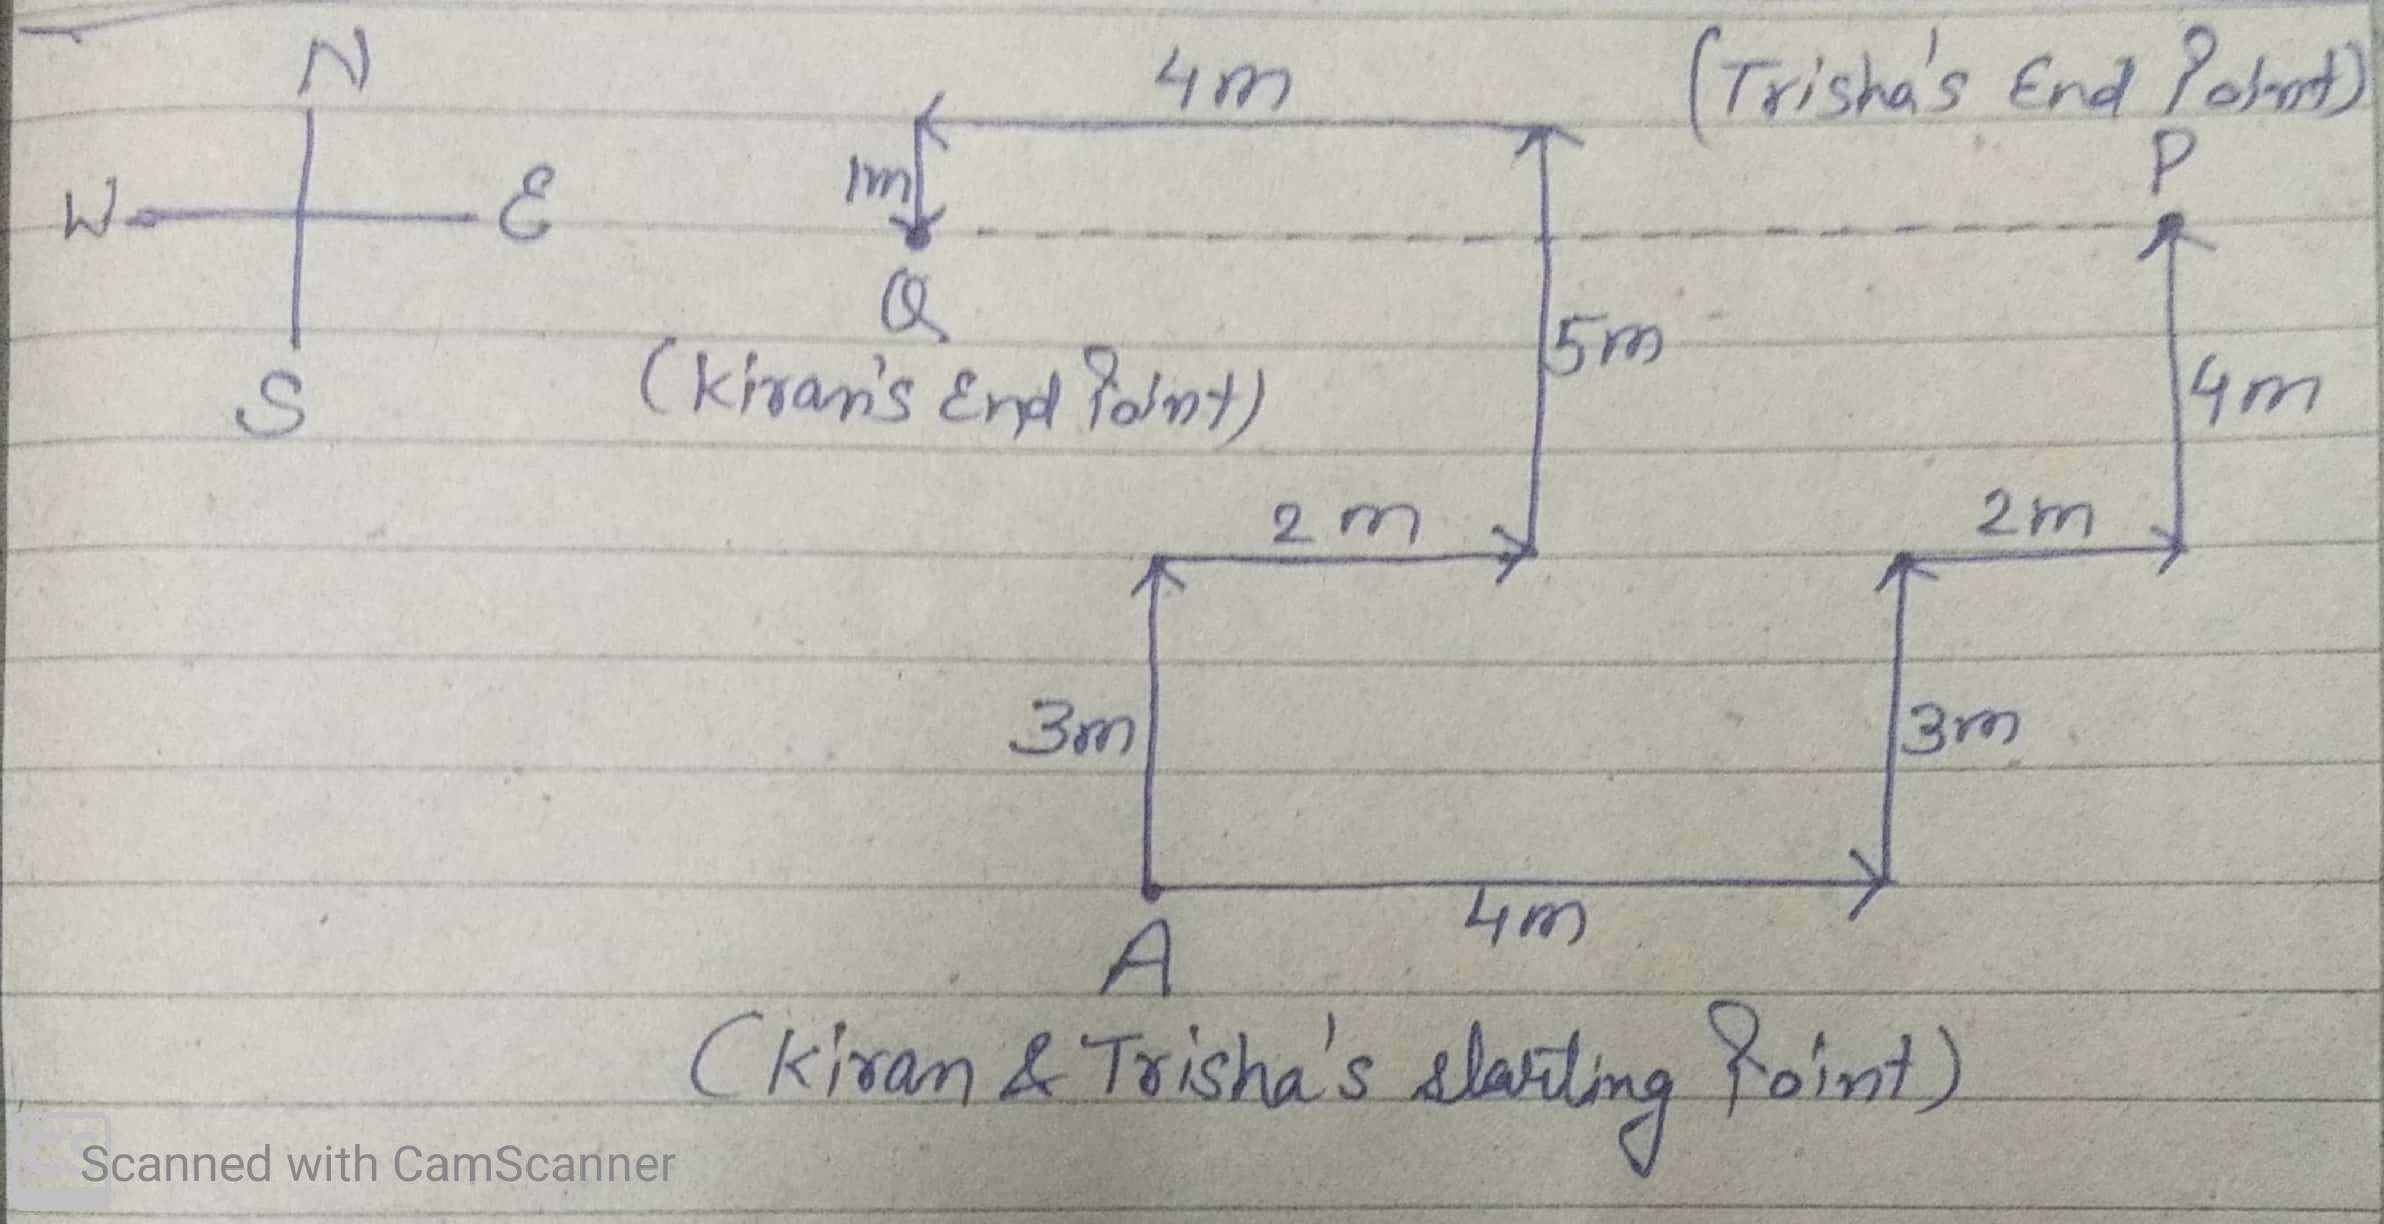 N
4m
(Trisha's End Point)
P
1m
W
E
Q
5m
4m
S
(Kiran's End Point)
2m
2m
3m
3m
4m
A
(Kiran & Trisha's starting Point)
Scanned with CamScanner